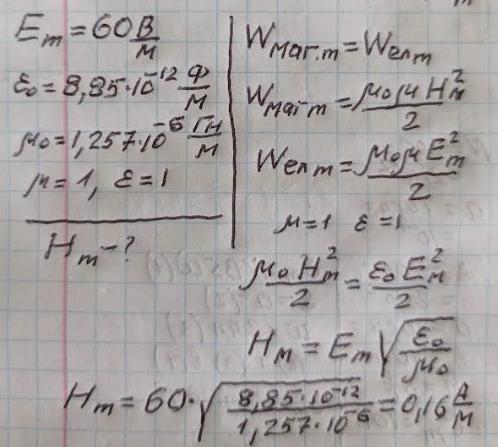 E_m = 60 В/м
ε₀ = 8,85·10⁻¹² Ф/м
μ₀ = 1,257·10⁻⁶ Гн/м
μ = 1, ε = 1
H_m - ?
W_маг.m = W_ел m
W_маг m = μ₀μ H_м²/2
W_ел m = μ₀μ E_m²/2
μ = 1 ε = 1
μ₀ H_m²/2 = ε₀ E_м²/2
H_м = E_m √(ε₀/μ₀)
H_m = 60·√(8,85·10⁻¹²/1,257·10⁻⁶) = 0,16 А/м